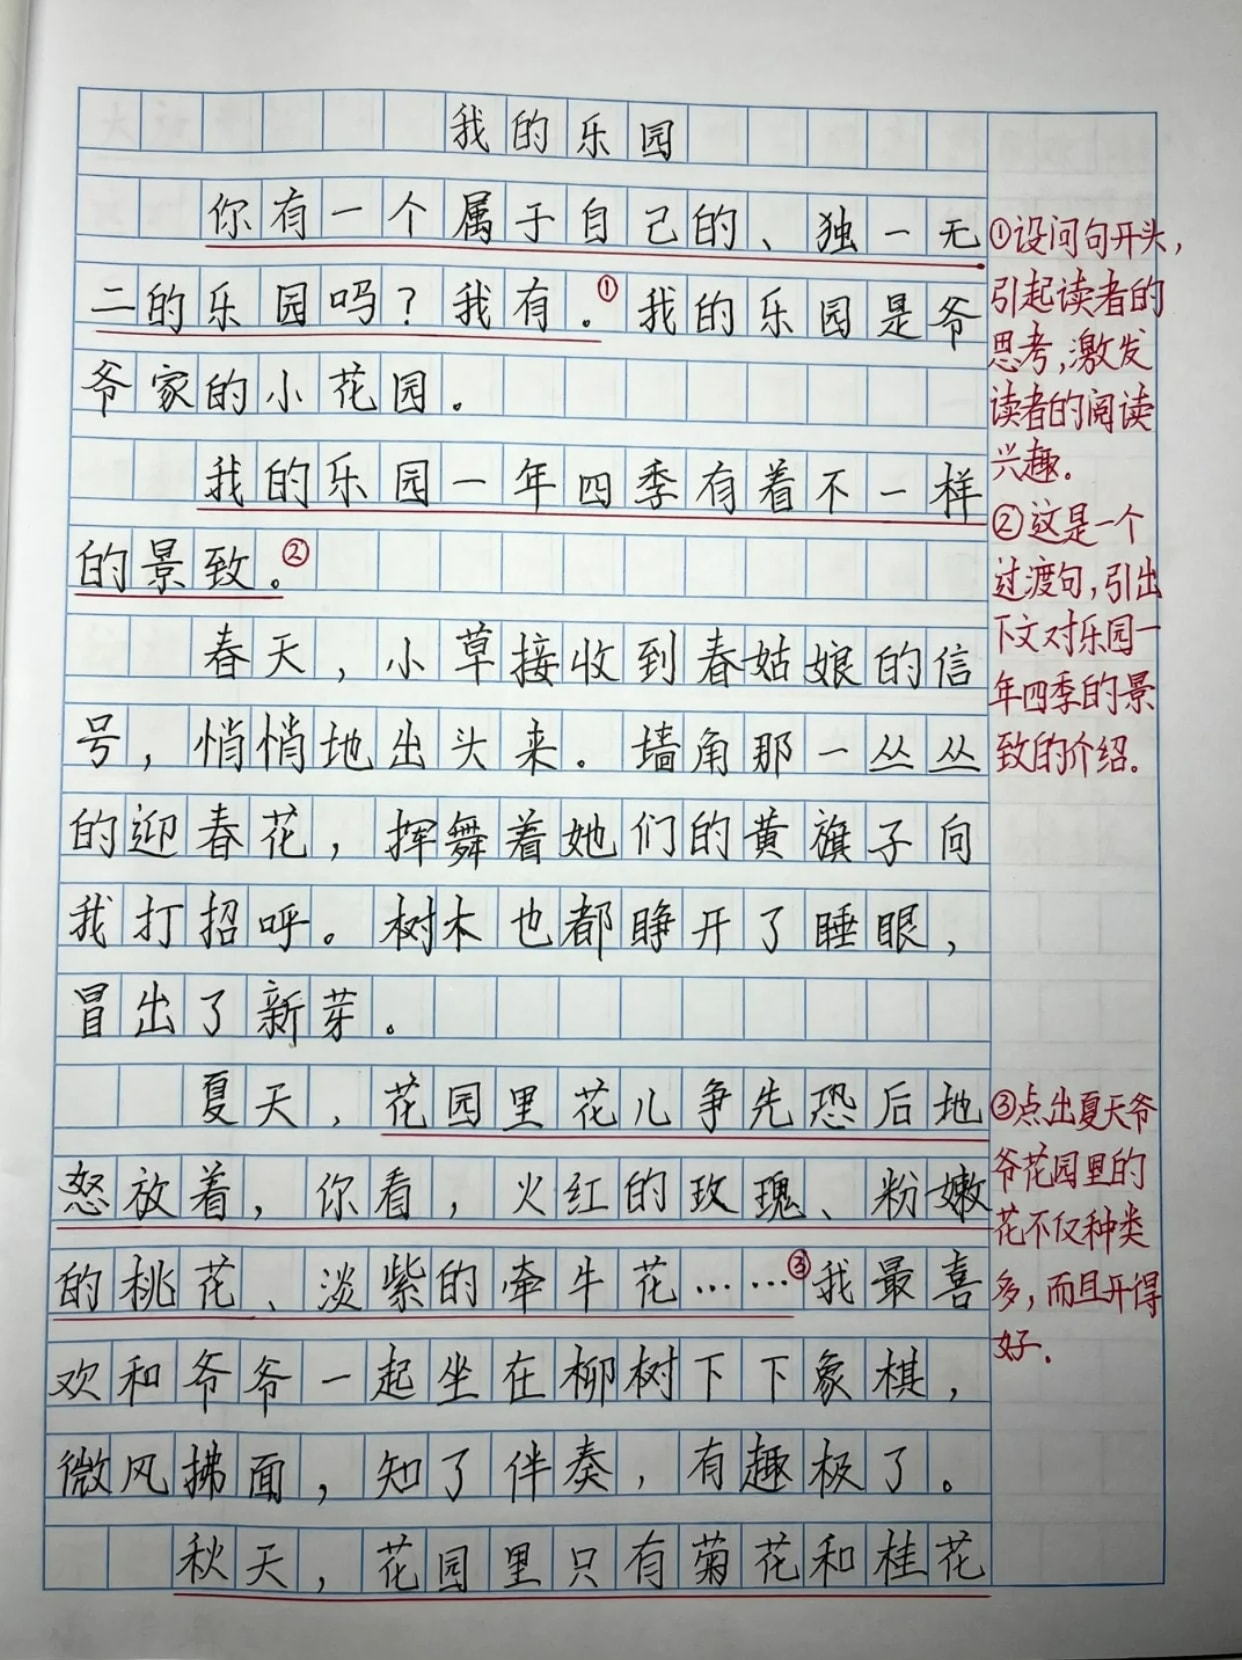 我的乐园
你有一个属于自己的、独一无
二的乐园吗？我有。①我的乐园是爷
爷家的小花园。
我的乐园一年四季有着不一样
的景致。②
春天，小草接收到春姑娘的信
号，悄悄地出头来。墙角那一丛丛
的迎春花，挥舞着她们的黄旗子向
我打招呼。树木也都睁开了睡眼，
冒出了新芽。
夏天，花园里花儿争先恐后地
怒放着，你看，火红的玫瑰、粉嫩
的桃花、淡紫的牵牛花……③我最喜
欢和爷爷一起坐在柳树下下象棋，
微风拂面，知了伴奏，有趣极了。
秋天，花园里只有菊花和桂花
①设问句开头，
引起读者的
思考，激发
读者的阅读
兴趣.
②这是一个
过渡句，引出
下文对乐园一
年四季的景
致的介绍.
③点出夏天爷
爷花园里的
花不仅种类
多，而且开得
好.